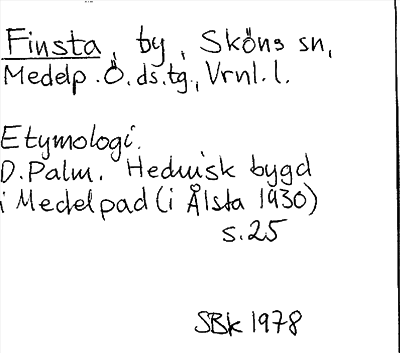 Finsta, by, Sköns sn,
Medelp. Ö. ds. tg., Vrnl. l.
Etymologi.
D. Palm. Hednisk bygd
i Medelpad (i Ålsta 1930)
s. 25
SBk 1978